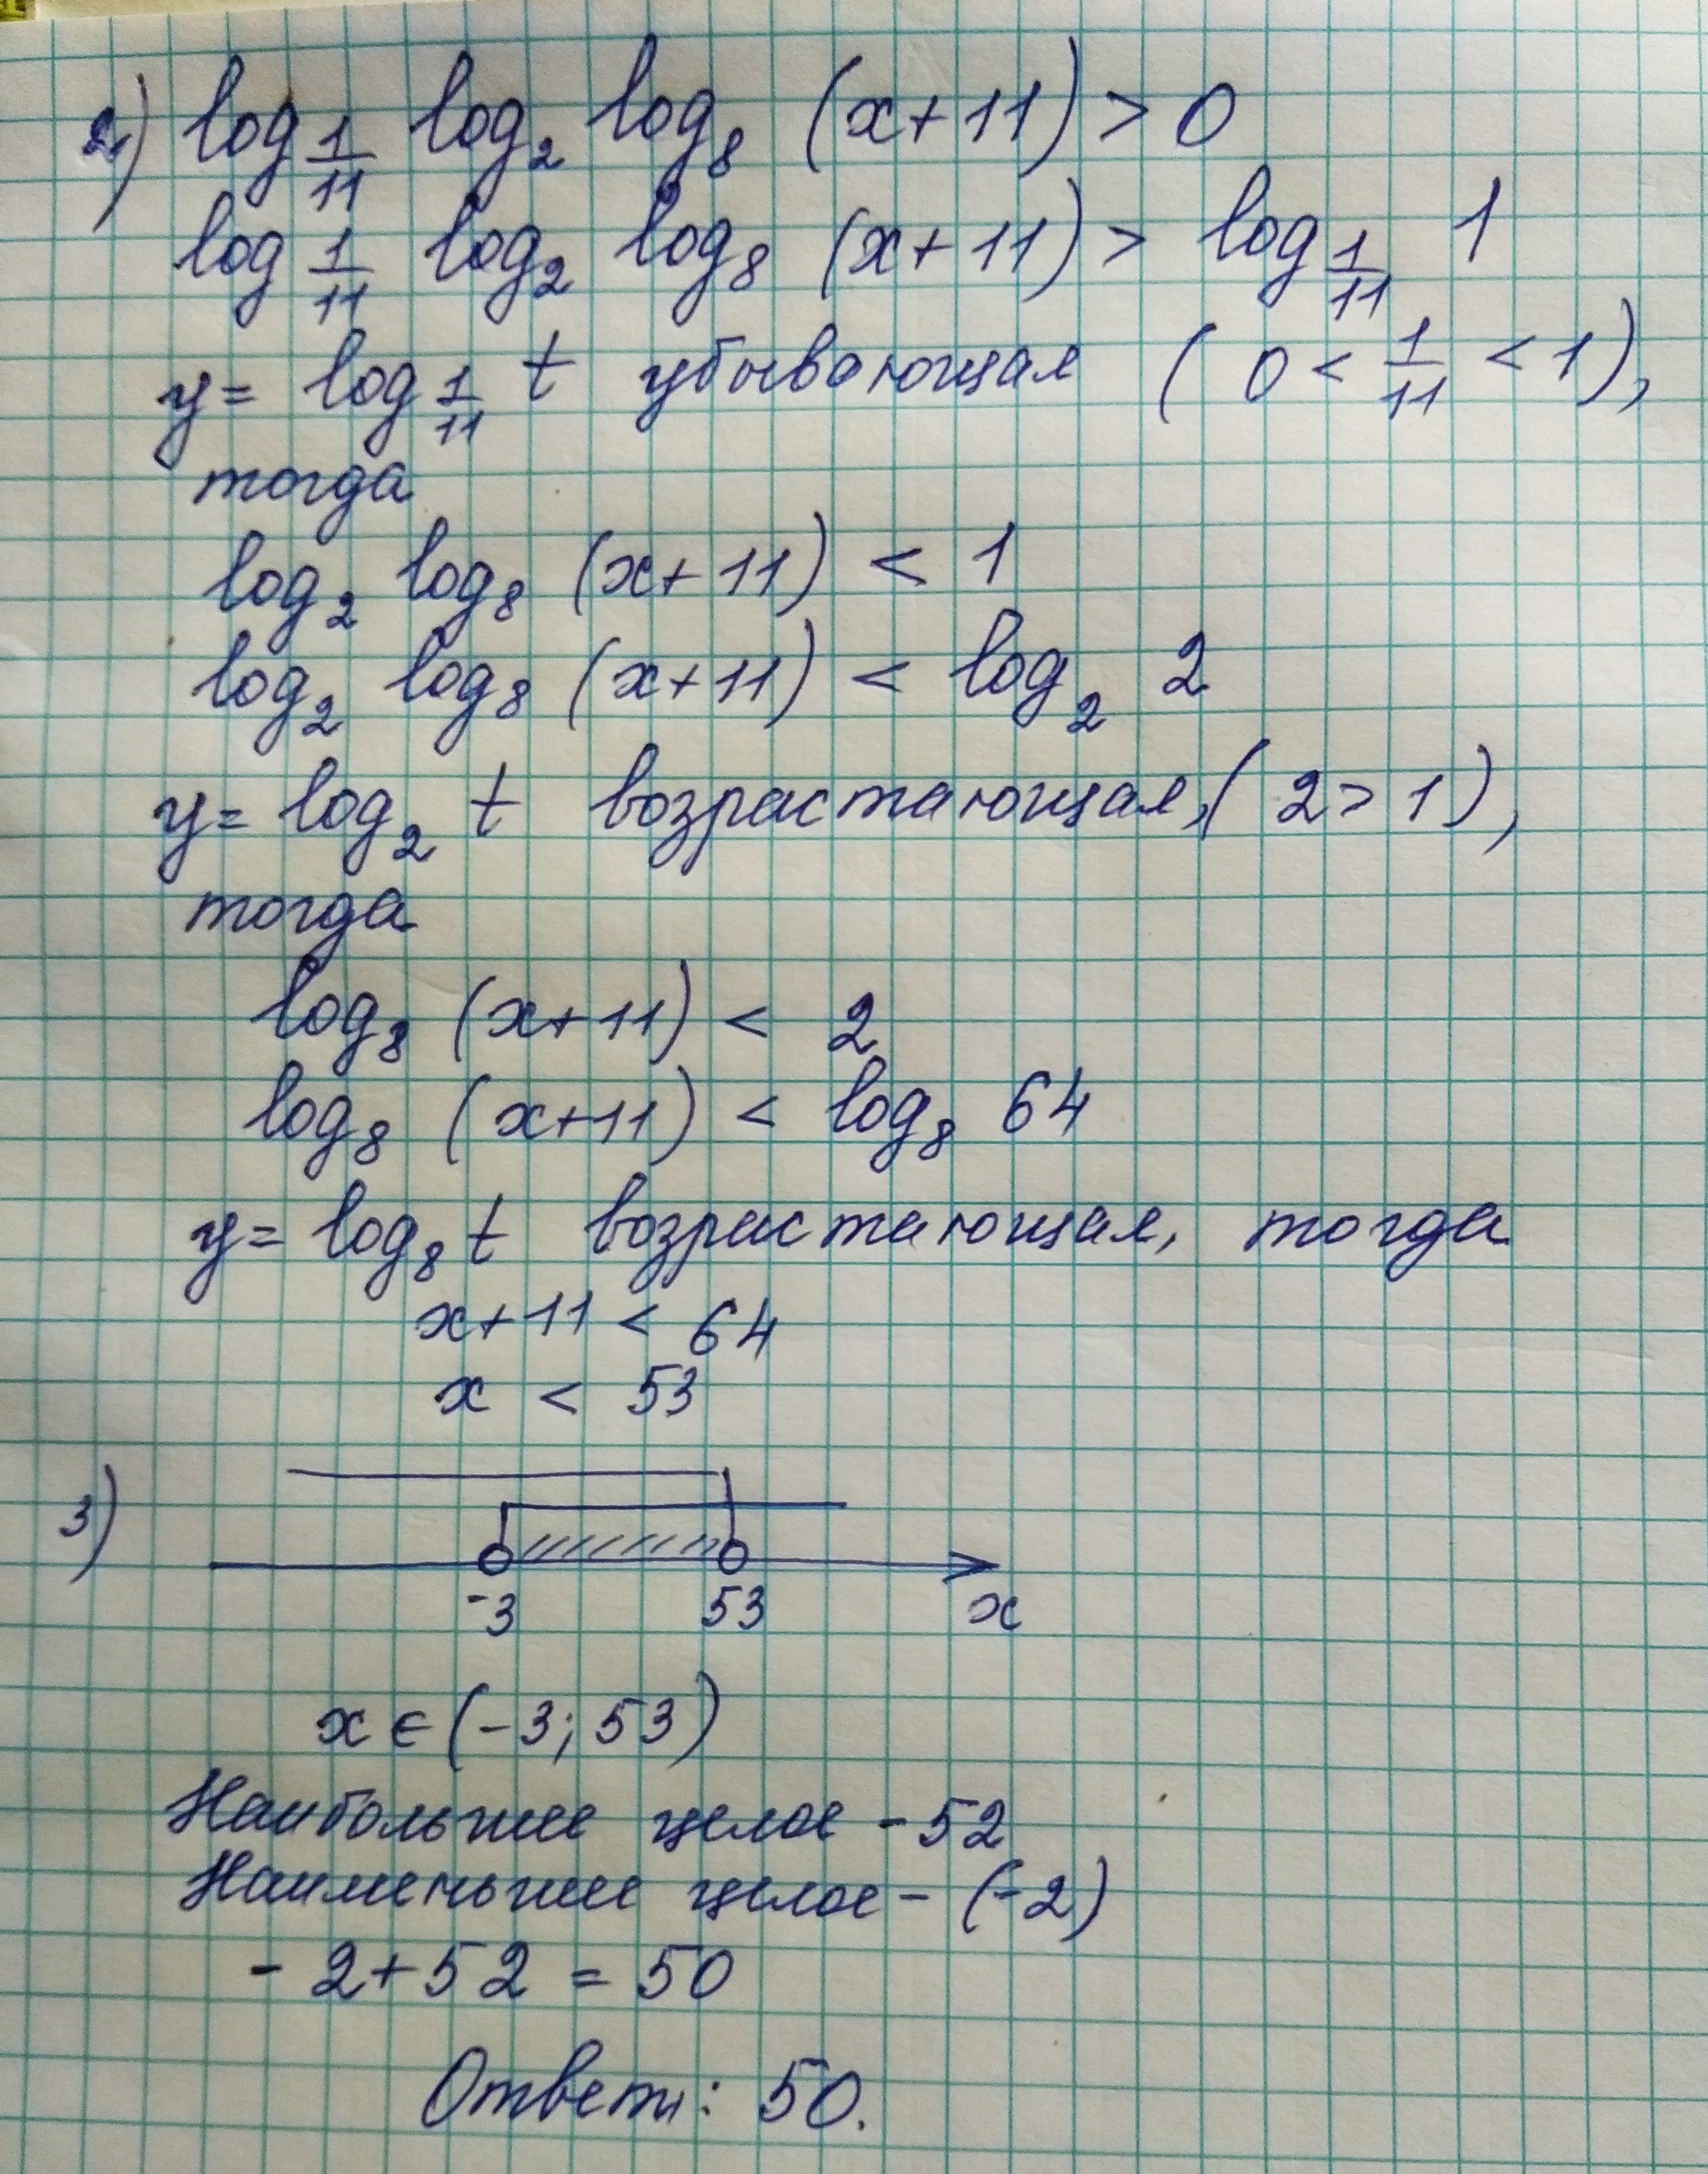 2) log 1/11 log₂ log₈ (x+11) > 0
log 1/11 log₂ log₈ (x+11) > log 1/11 1
y = log 1/11 t убывающая ( 0 < 1/11 < 1),
тогда
log₂ log₈ (x+11) < 1
log₂ log₈ (x+11) < log₂ 2
y = log₂ t возрастающая, ( 2 > 1),
тогда
log₈ (x+11) < 2
log₈ (x+11) < log₈ 64
y = log₈ t возрастающая, тогда
x+11 < 64
x < 53
3)
-3 53 x
x ∈ (-3; 53)
Наибольшее целое - 52
Наименьшее целое - (-2)
- 2 + 52 = 50
Ответ: 50.